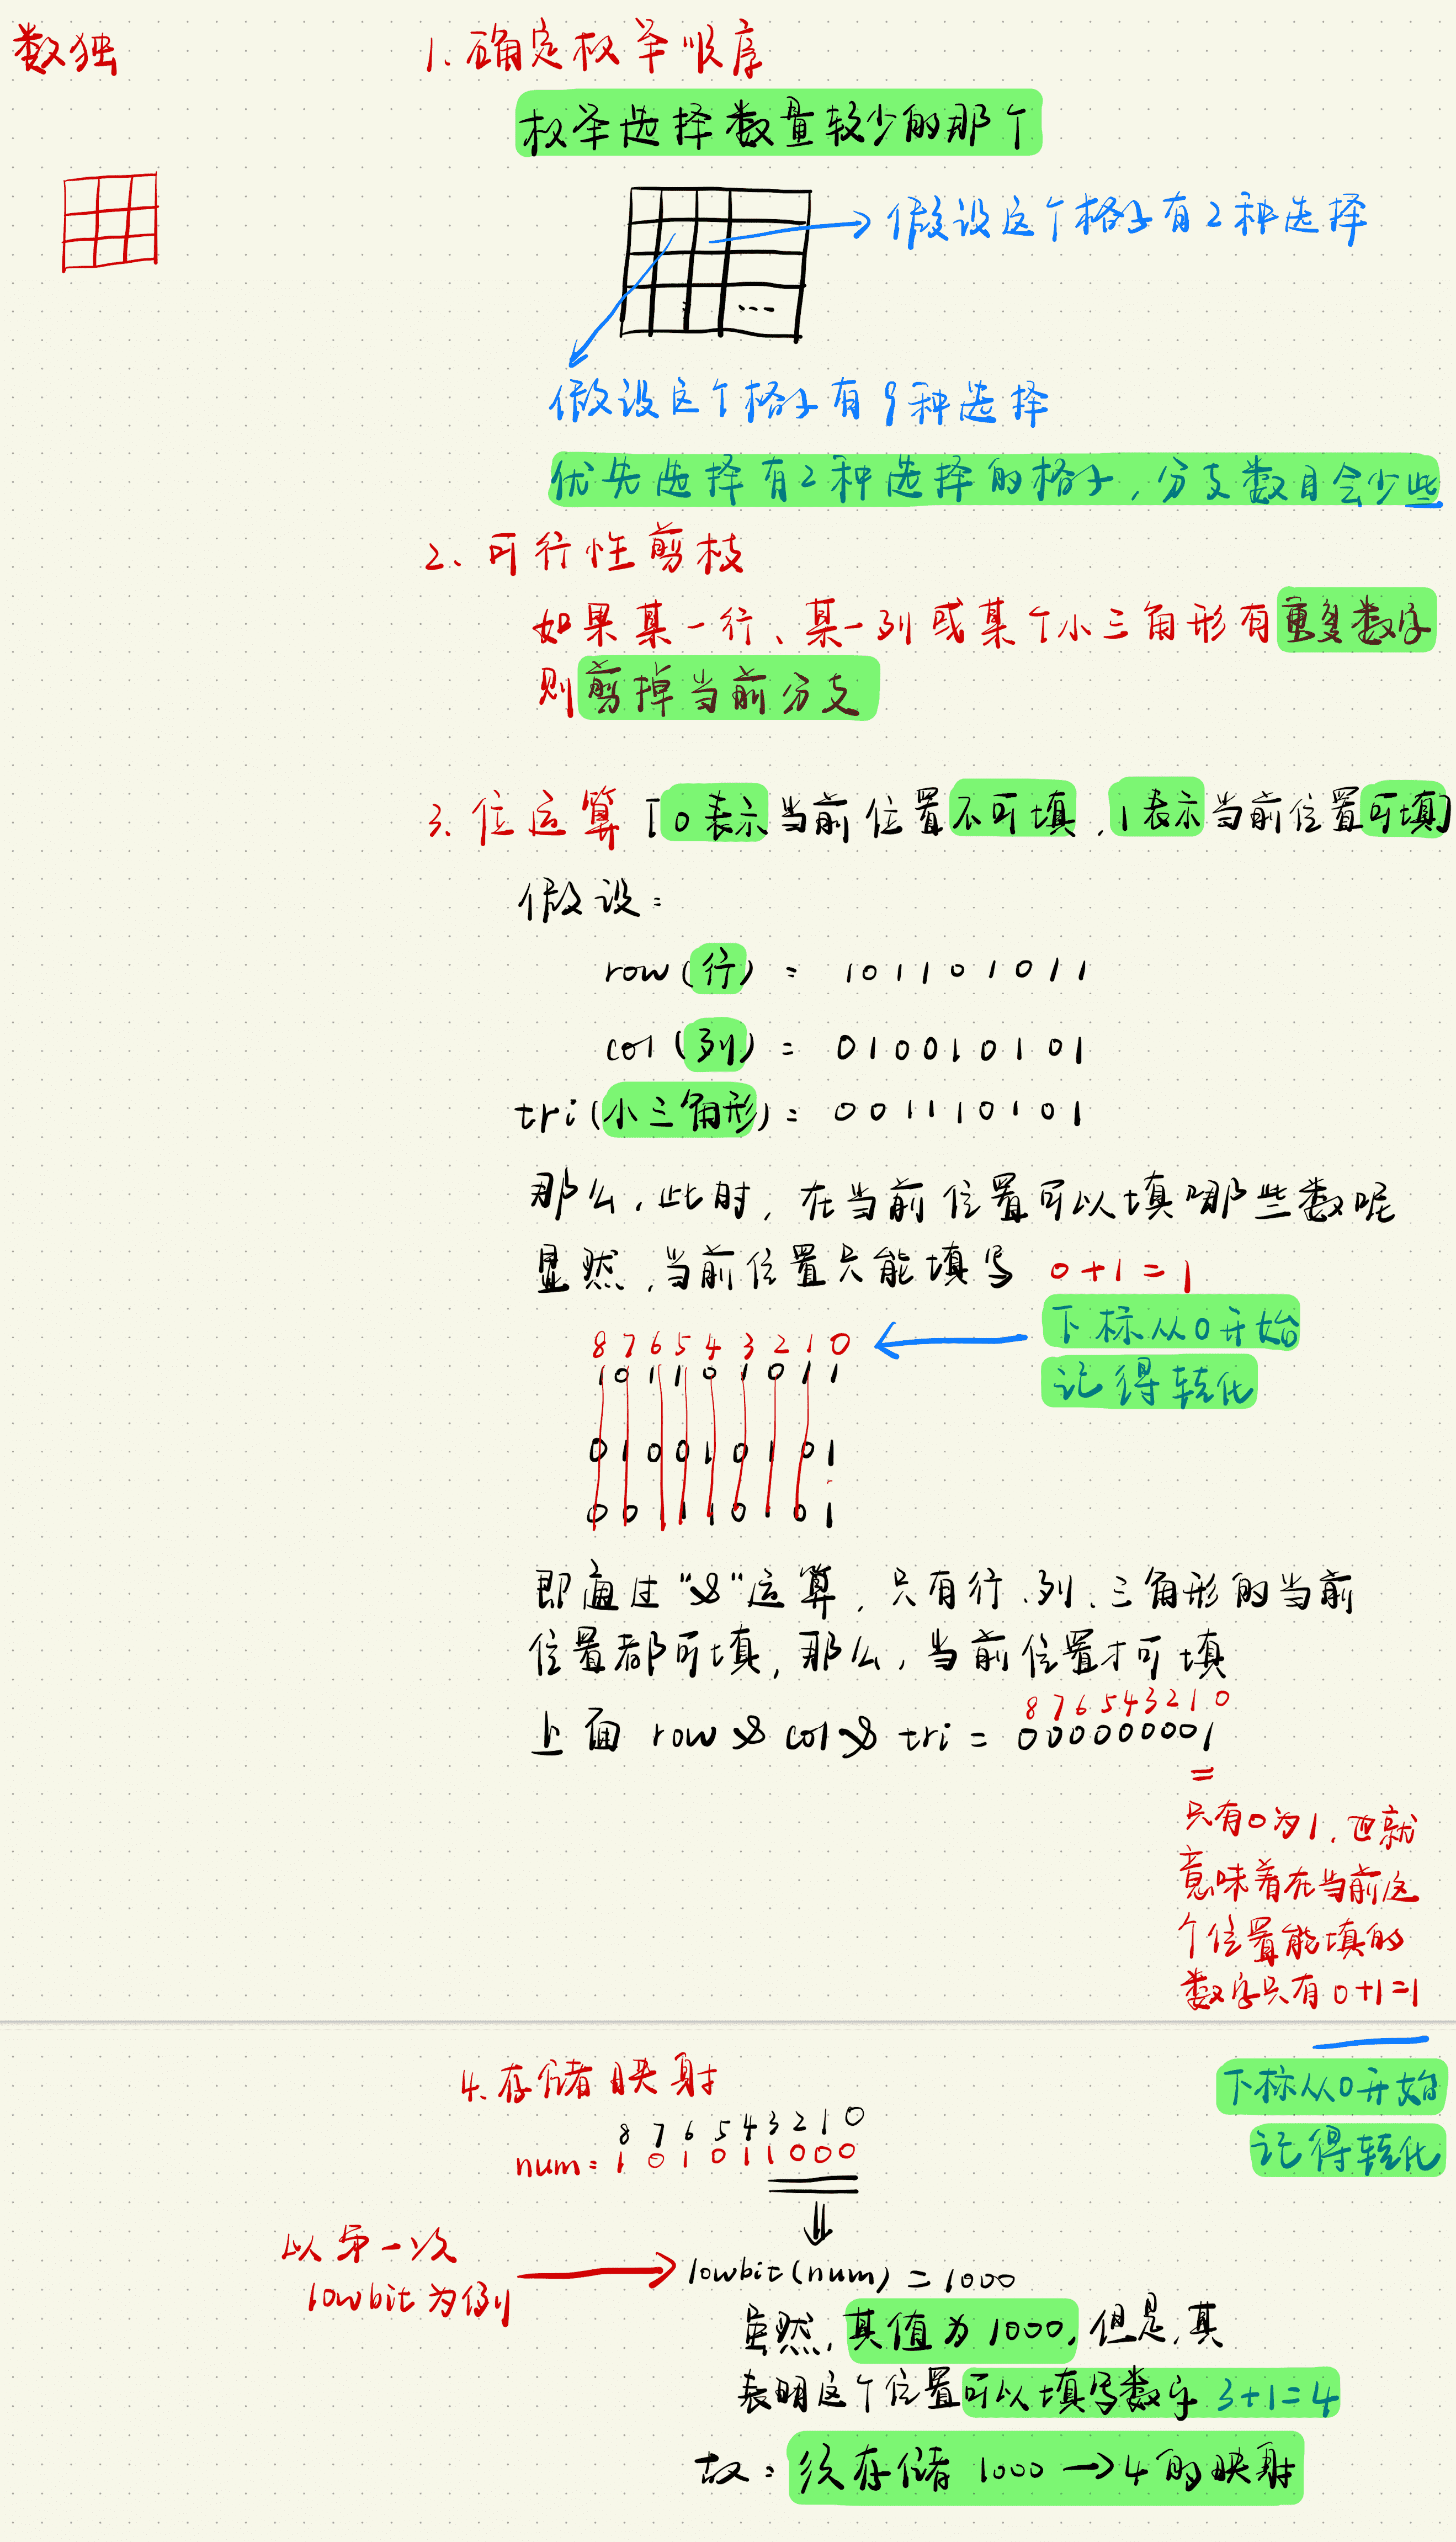 数独
1. 确定枚举顺序
枚举选择数量较少的那个
假设这个格子有2种选择
假设这个格子有9种选择
优先选择有2种选择的格子,分支数目会少些
2、可行性剪枝
如果某一行、某一列或某个小三角形有重复数字
则剪掉当前分支
3. 位运算「0表示当前位置不可填,1表示当前位置可填」
假设:
row(行) = 101101011
col(列) = 010010101
tri(小三角形) = 001110101
那么,此时,在当前位置可以填哪些数呢
显然,当前位置只能填写 0+1=1
8 7 6 5 4 3 2 1 0
下标从0开始
记得转化
1 0 1 1 0 1 0 1 1
0 1 0 0 1 0 1 0 1
0 0 1 1 1 0 1 0 1
即通过"&"运算,只有行、列、三角形的当前
位置都可填,那么,当前位置才可填
8 7 6 5 4 3 2 1 0
上面 row & col & tri = 000000001
只有0为1,也就
意味着在当前这
个位置能填的
数字只有0+1=1
下标从0开始
记得转化
4. 存储映射
8 7 6 5 4 3 2 1 0
num= 1 0 1 0 1 1 0 0 0
以第一次
lowbit为例
lowbit(num) = 1000
虽然,其值为1000,但是,其
表明这个位置可以填写数字 3+1=4
故:须存储 1000→4的映射